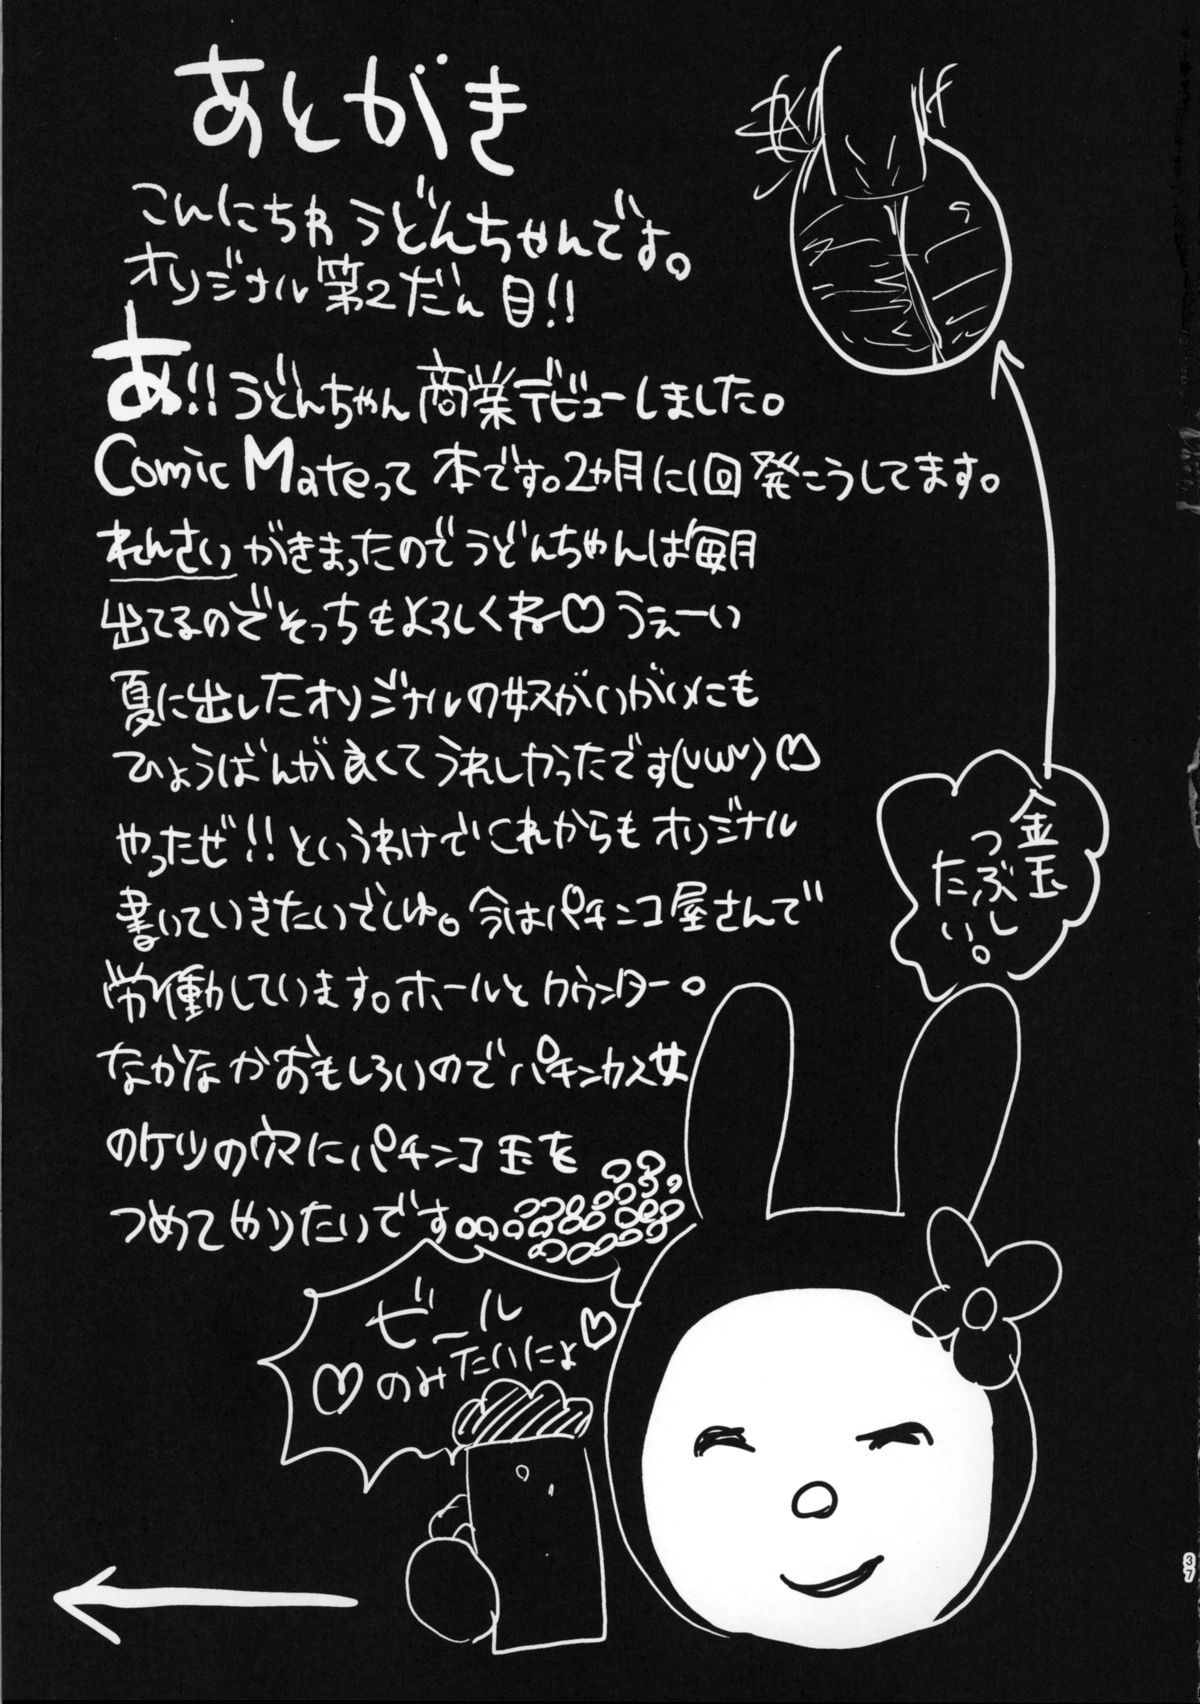 あとがき
こんにちわ うどんちゃんです。
オリジナル第2だん目!!
あ!! うどんちゃん商業デビューしました。
Comic Mateって本です。2カ月に1回発こうしてます。
れんさいがきまったのでうどんちゃんは毎月
出てるのでそっちもよろしくね♡うぇーい
夏に出したオリジナルの奴がいがいにも
ひょうばんが良くてうれしかったです(uwu)♡
やったぜ!!というわけでこれからもオリジナル
書いていきたいでしゅ。今はパチンコ屋さんで
労働しています。ホールとカウンター。
なかなかおもしろいのでパチンカス女
のケツの穴にパチンコ玉を
つめてやりたいです。
金玉
つぶし
たい。
ビール
♡のみたいにょ♡
37